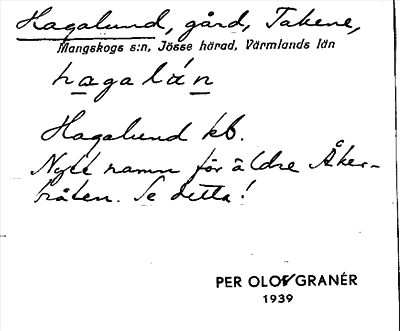 Hagalund, gård, Takene,
Mangskogs s:n, Jösse härad, Värmlands län
hagalún
Hagalund kb.
Nytt namn för äldre Åker-
bråten. Se detta!
PER OLOF GRANÉR
1939